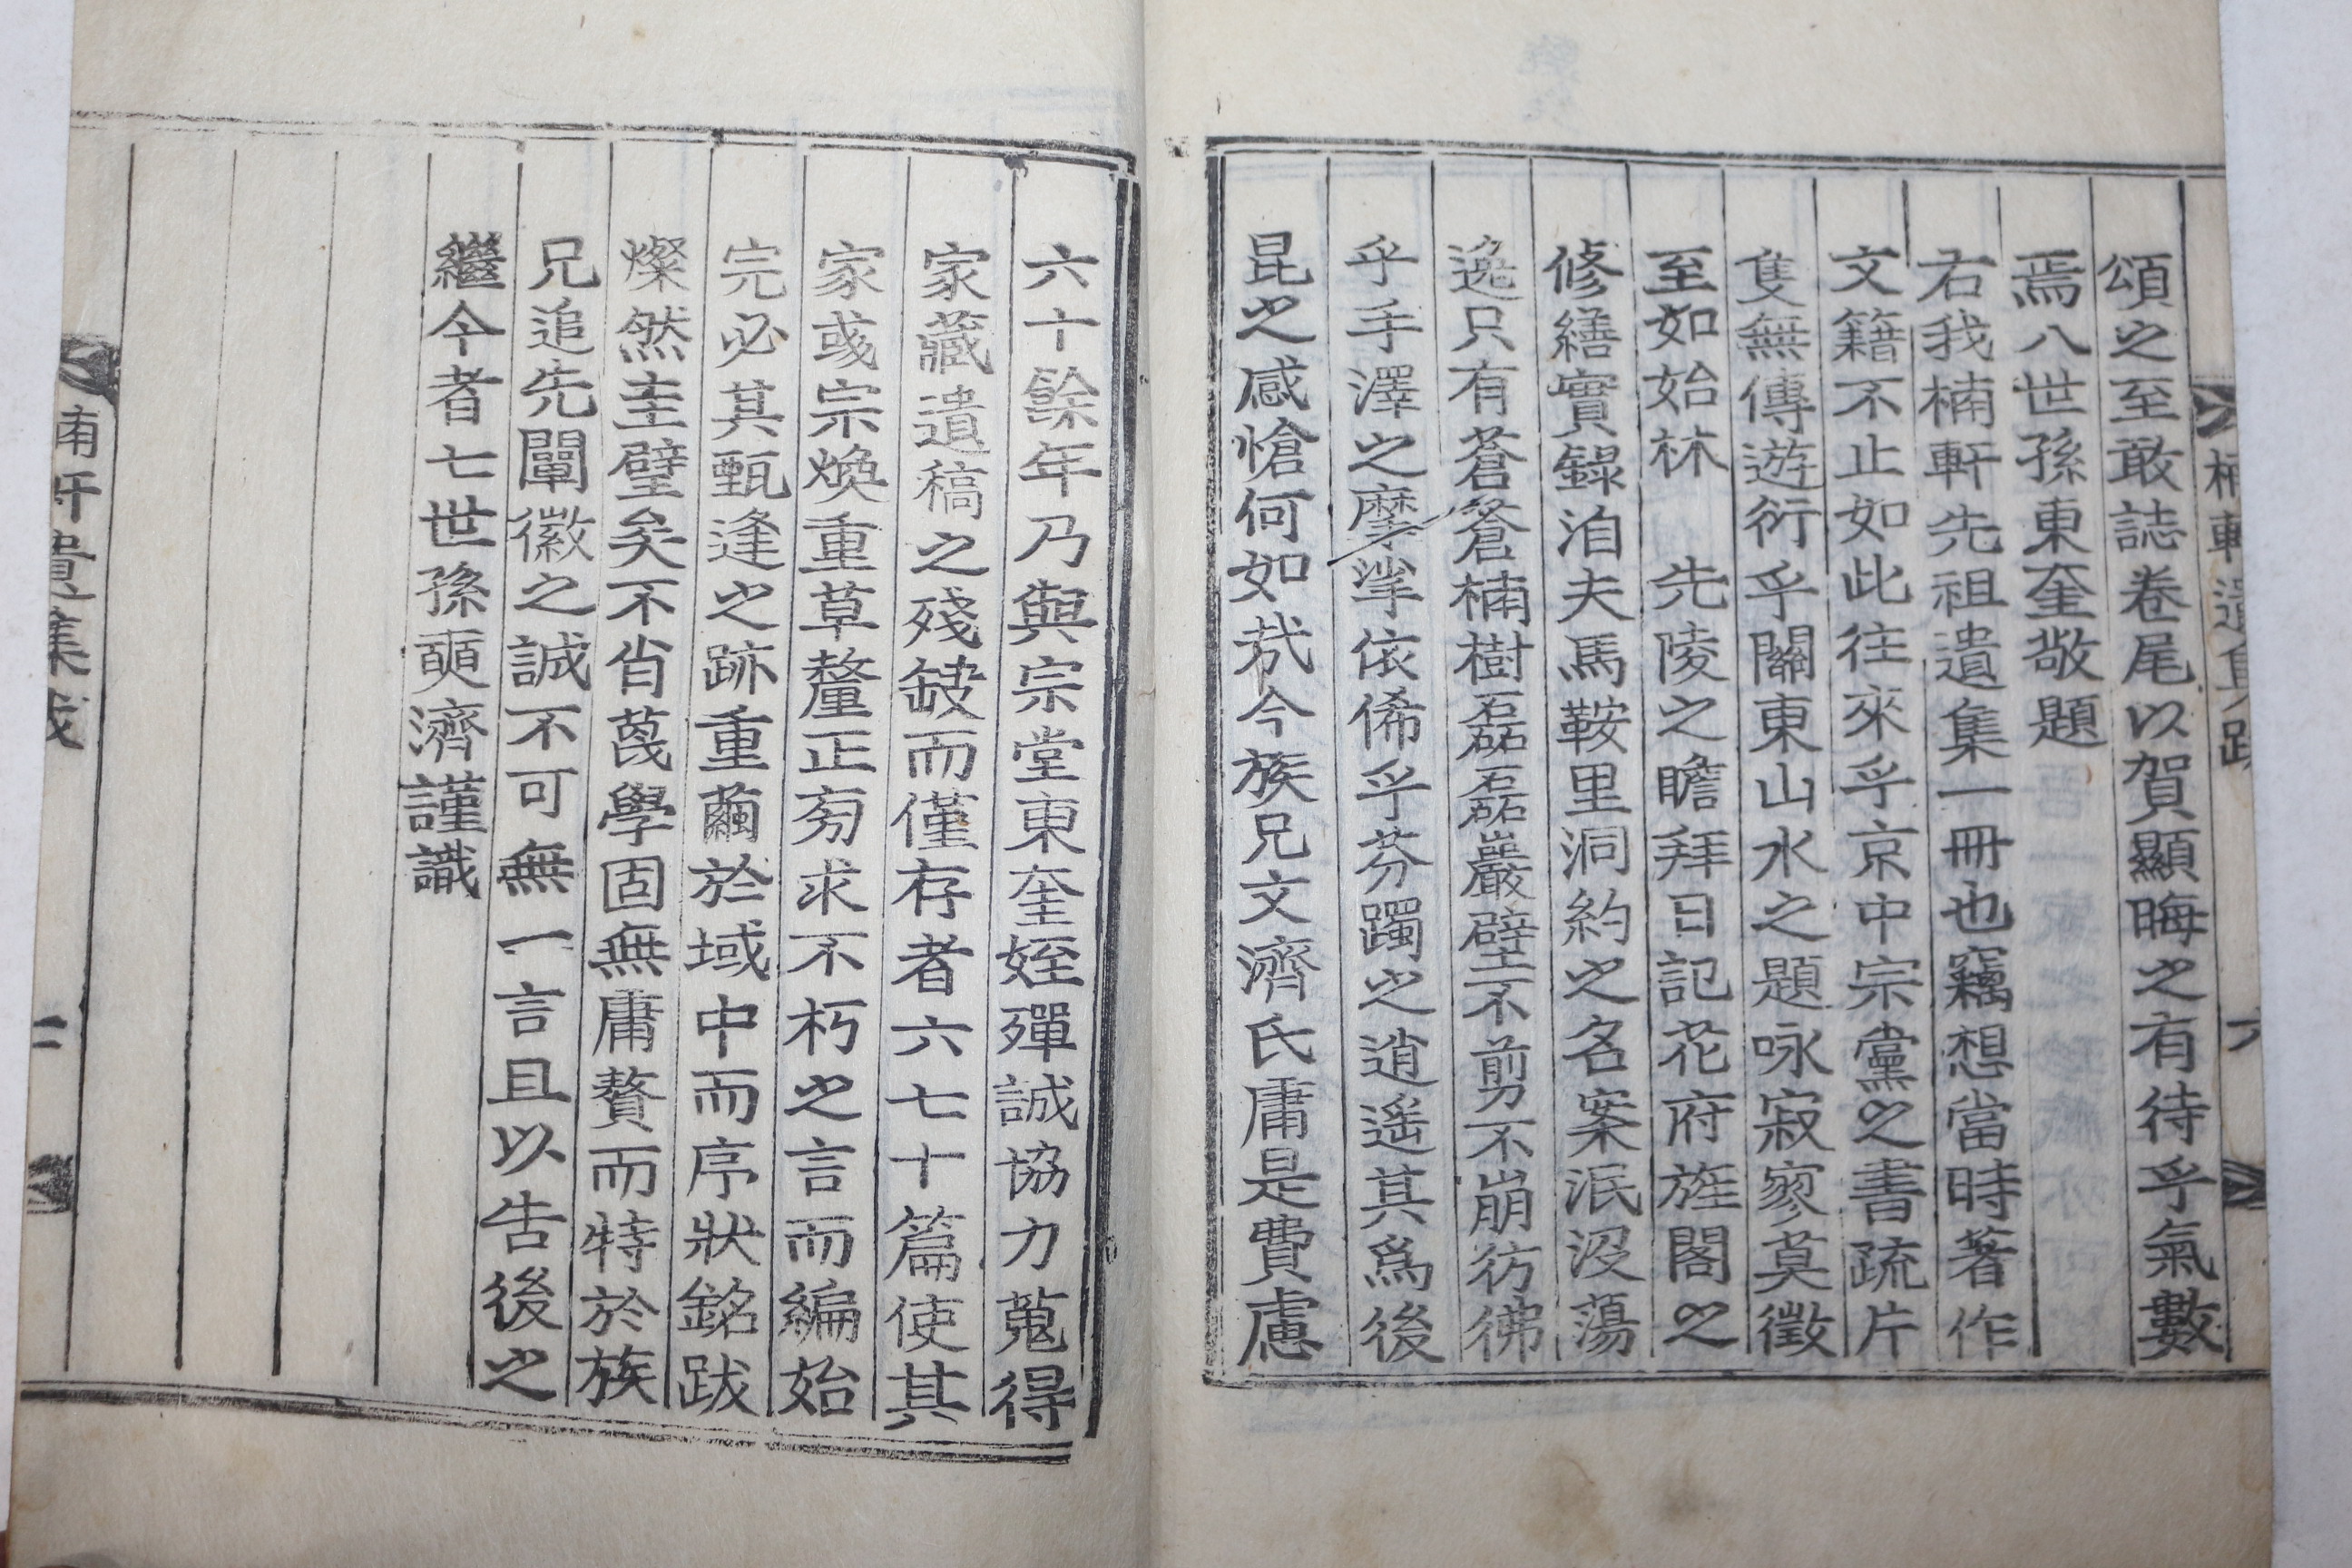 楠軒遺集跋
頌之至敢誌卷尾以賀顯晦之有待乎氣數
焉八世孫東奎敬題
右我楠軒先祖遺集一冊也竊想當時著作
文籍不止如此往來乎京中宗黨之書疏片
隻無傳遊衍乎關東山水之題咏寂寥莫徵
至如始林 先陵之瞻拜日記花府旌閣之
修繕實錄洎夫馬鞍里洞約之名案泯沒蕩
逸只有蒼蒼楠樹磊磊巖壁不剪不崩彷彿
乎手澤之摩挲依俙乎芬躅之逍遥其爲後
昆之感愴何如哉今族兄文濟氏庸是費慮
六十餘年乃與宗堂東奎姪殫誠協力蒐得
家藏遺稿之殘缺而僅存者六七十篇使其
家彧宗煥重草釐正旁求不朽之言而編始
完必其甄逢之跡重繭於域中而序狀銘跋
燦然圭璧矣不省蔑學固無庸贅而特於族
兄追先闡徽之誠不可無一言且以告後之
繼今者七世孫奭濟謹識
楠軒遺集跋
二